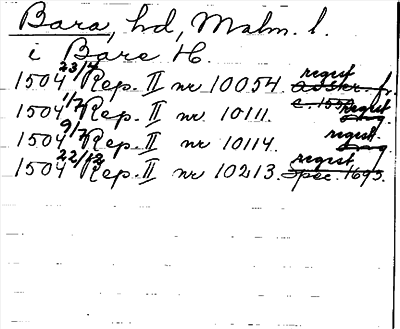 Bara, hd, Malm. l.
i Bare H.
1504 23/4 Rep. II nr 10054. regest avskr. fr. c. 1550
1504 1/7 Rep. II nr. 10111. regest
1504 9/7 Rep. II nr 10114. regest.
1504 22/12 Rep. II nr 10213. regest spec. 1695.